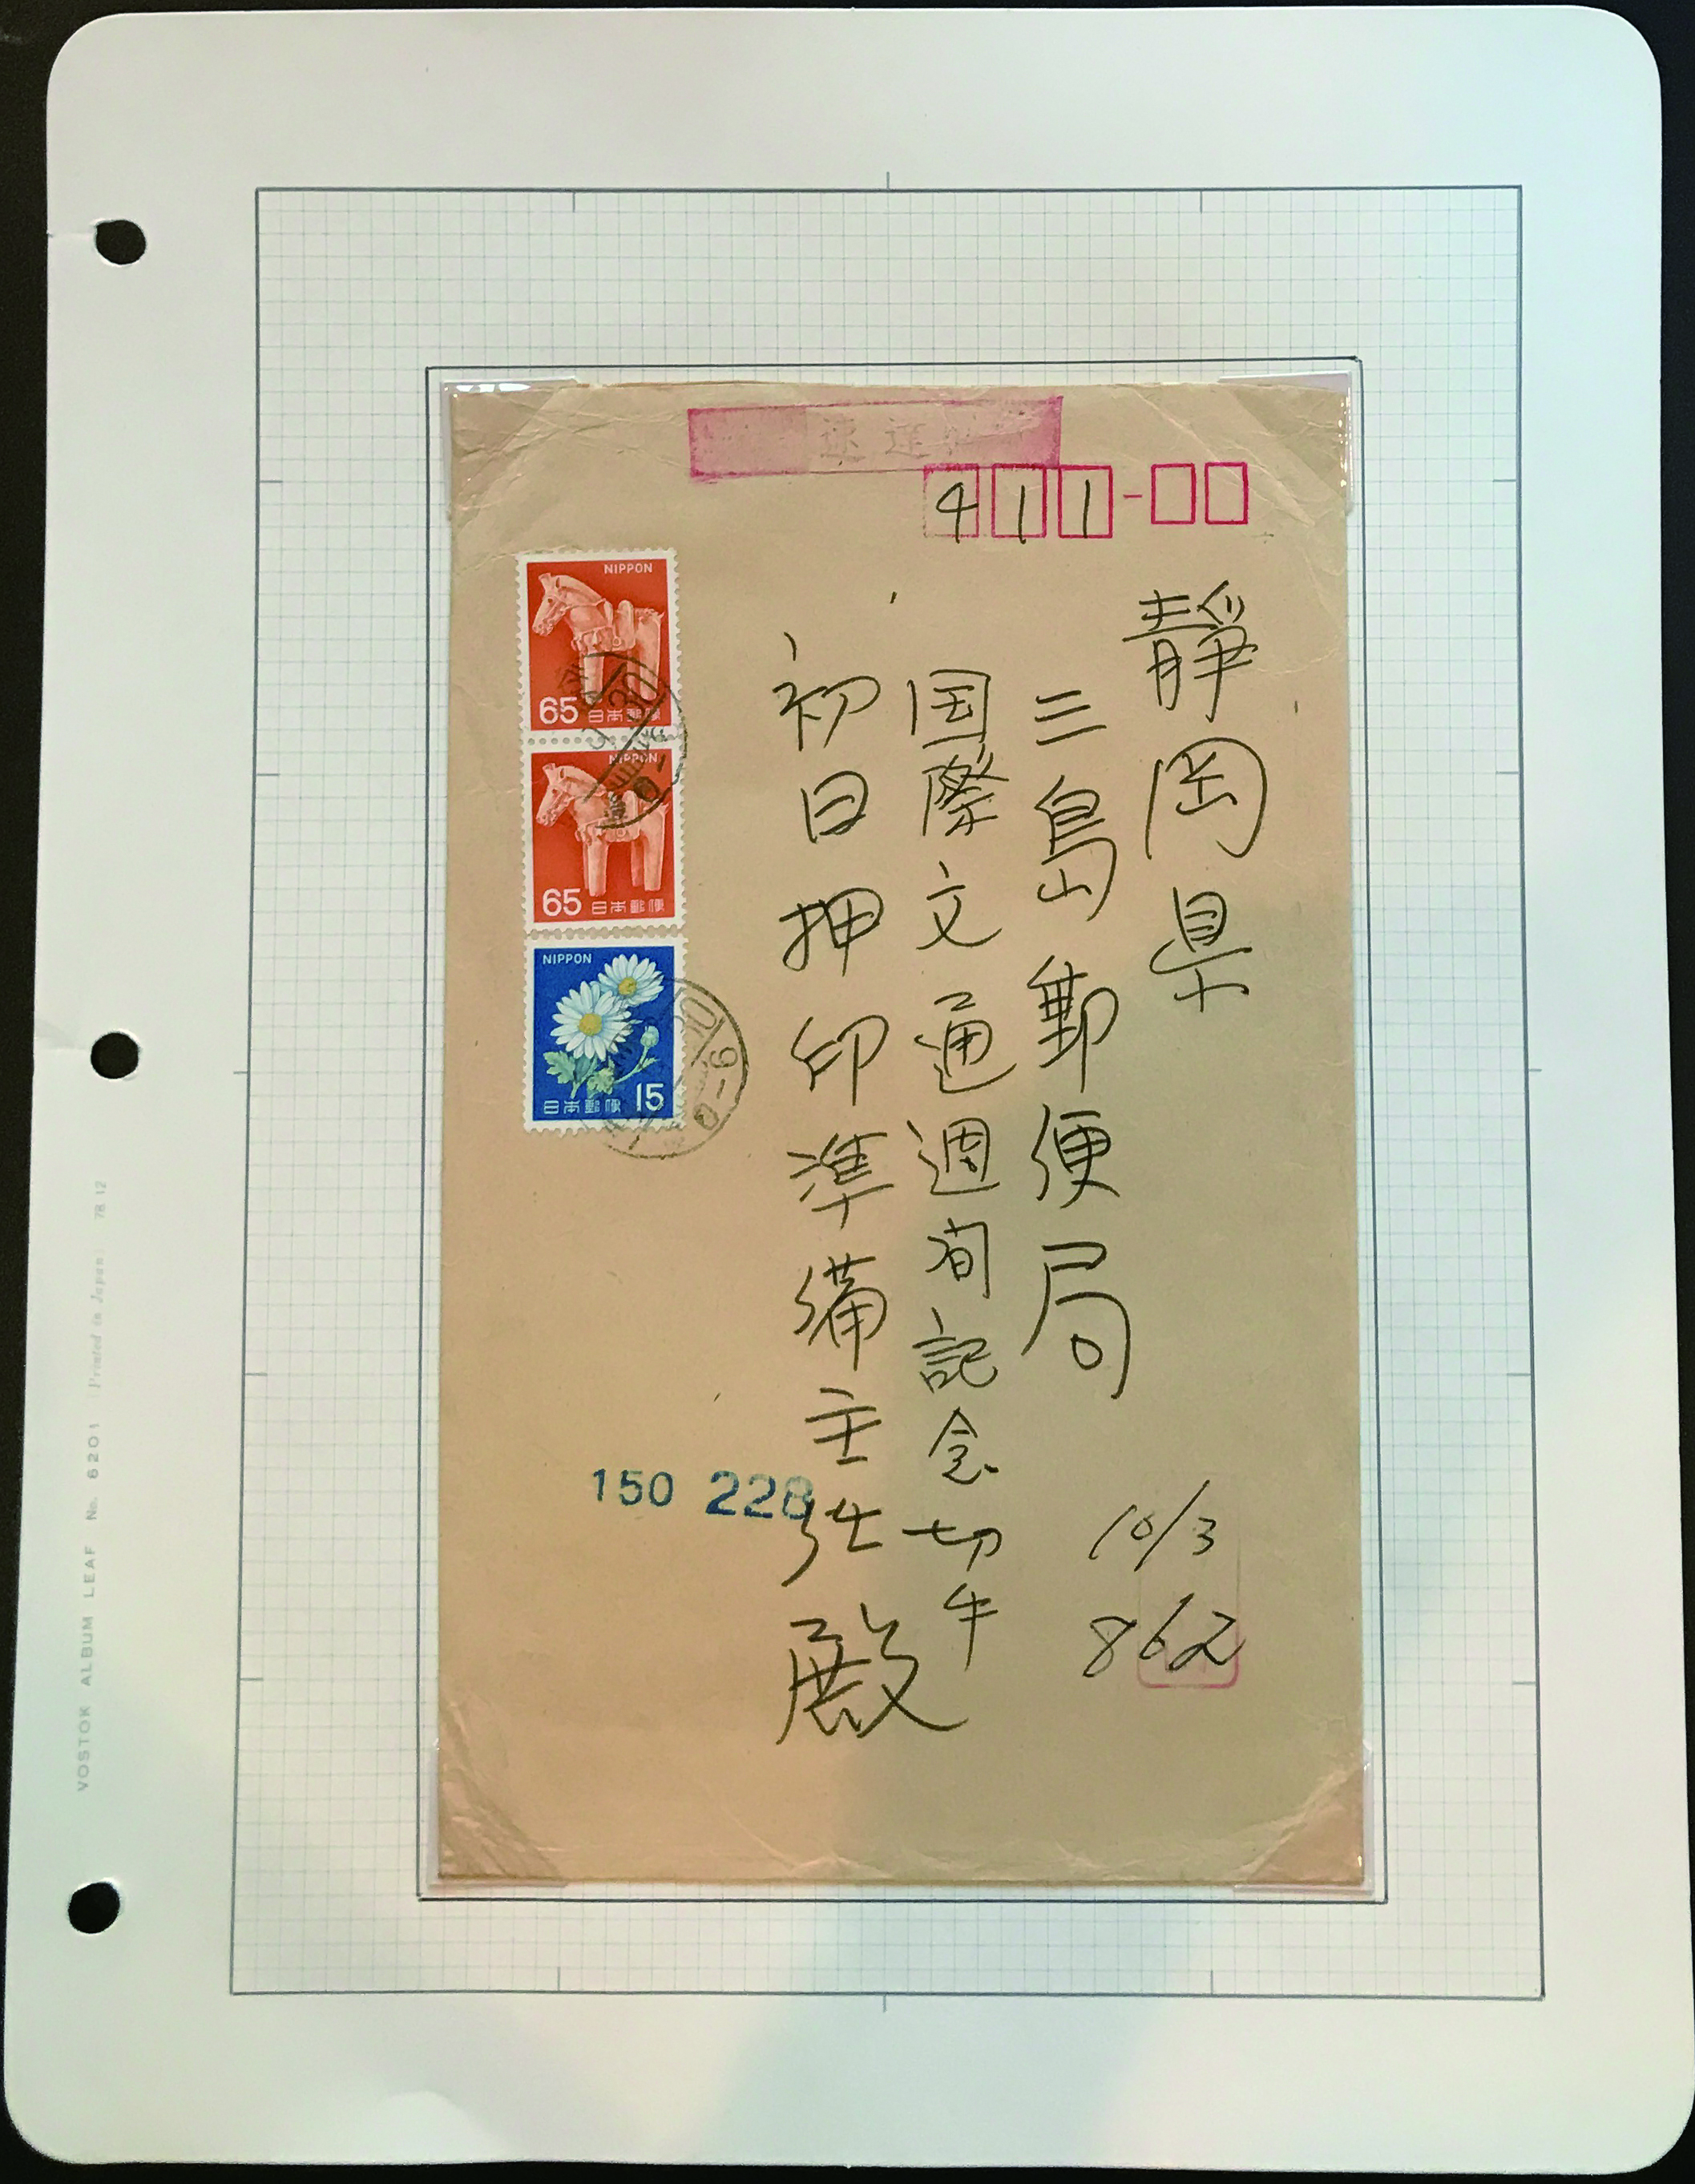 速達
411
静岡県
三島郵便局
国際文通週间記念切手
初日押印準備主任殿
10/3
862
NIPPON
65 日本郵便
NIPPON
65 日本郵便
NIPPON
日本郵便 15
150 228
VOSTOK ALBUM LEAF No. 6201 Printed in Japan 78.12